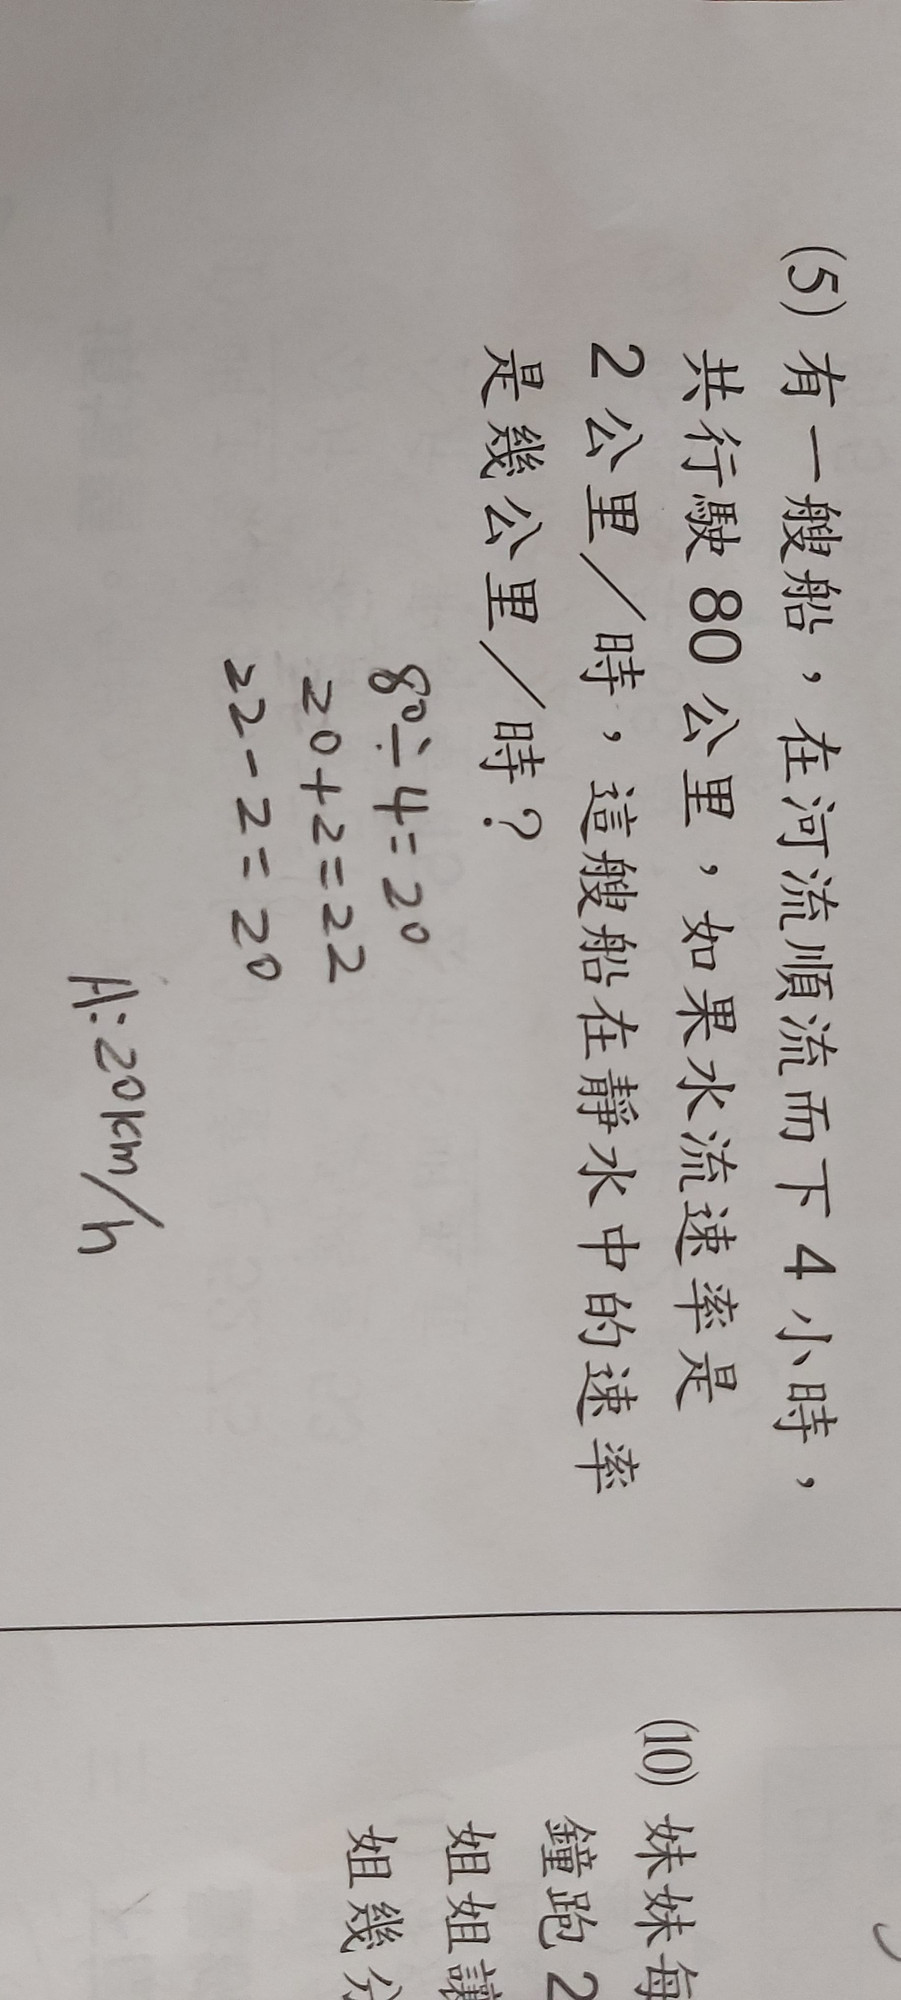 (5) 有一艘船，在河流順流而下 4 小時，
共行駛 80 公里，如果水流速率是
2 公里／時，這艘船在靜水中的速率
是幾公里／時？
80÷4=20
20+2=22
22-2=20
A:20km/h
(10) 妹妹每
鐘跑 2
姐姐讓
姐幾分